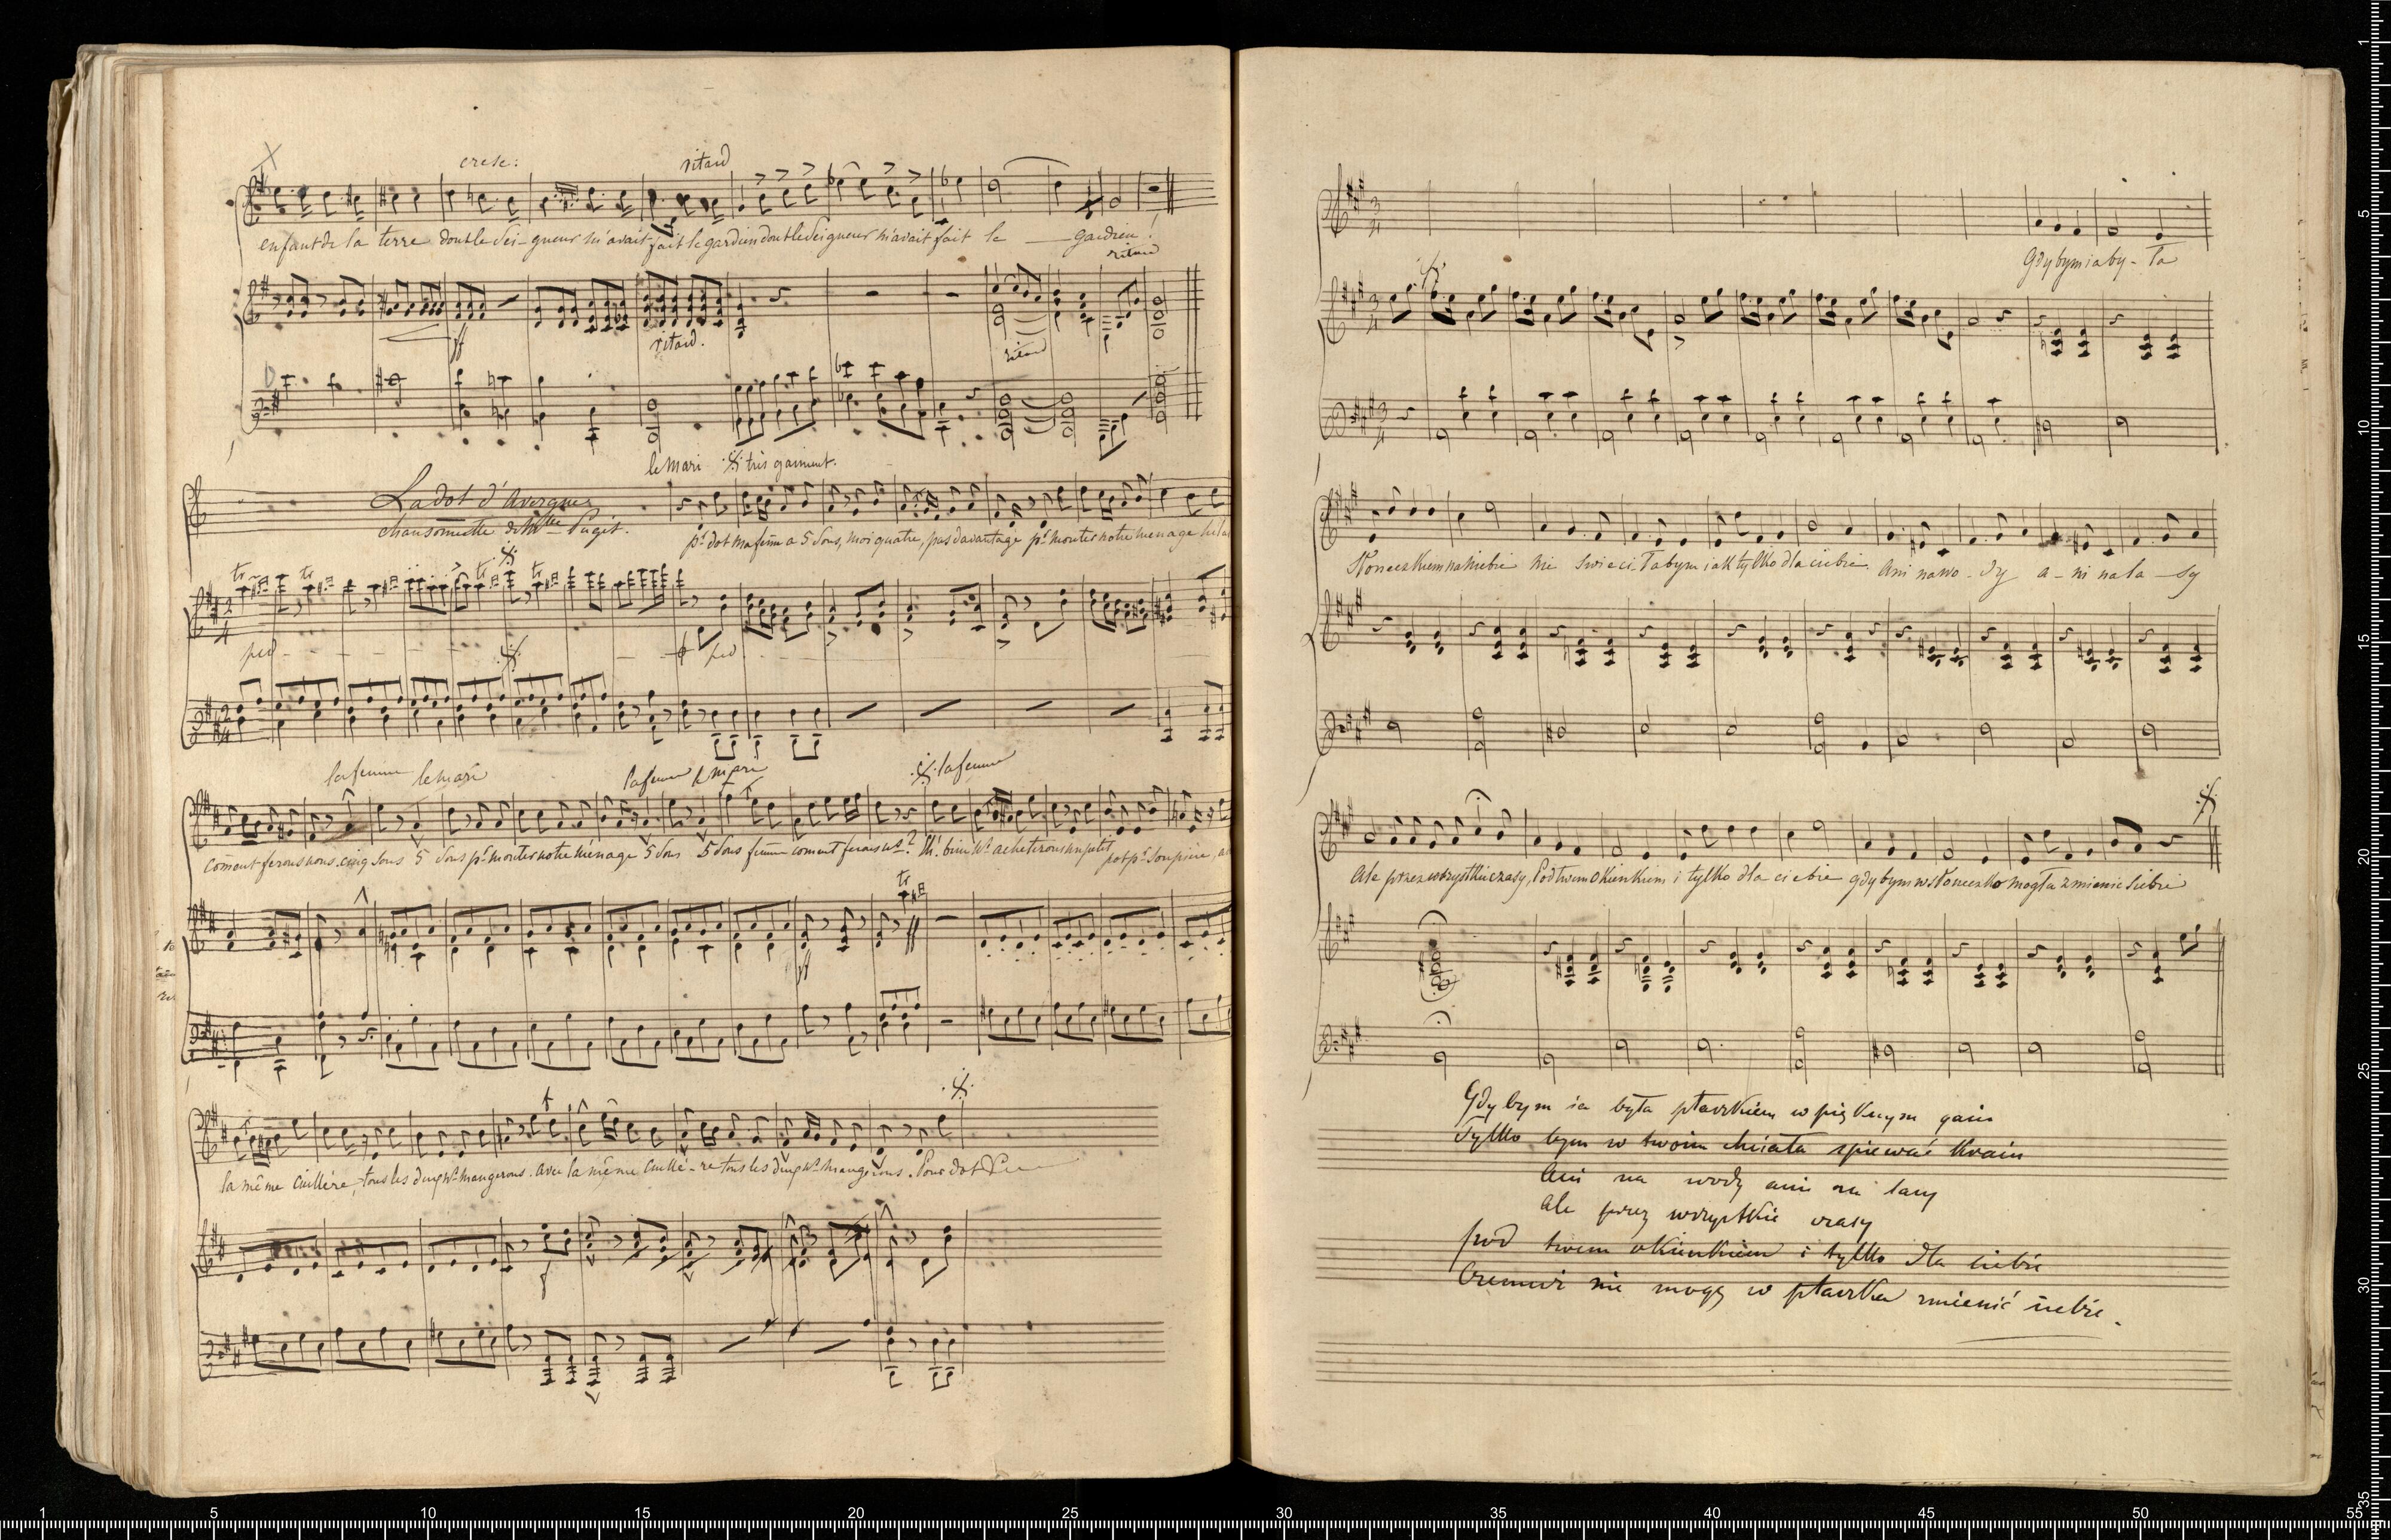 cresc: ritard
enfant de la terre dont le Sei-gneur m'avait fait le gardien dont le Seigneur m'avait fait le gardien!
ritard
ff ritard. ritard
le Mari très gaiment.
La dot d'Avergne
chansonnette de Mlle Puget.
pr dot ma femme a 5 Sous, moi quatre, pas davantage pr monter notre menage
tr tr tr tr
ped ped
la femme le mari la femme le mari la femme
coment ferons nous. cinq Sous 5 Sous pr monter notre ménage 5 Sous 5 Sous femme coment ferons ns? Eh! bien ns acheterons un petit pot pr
tr
ff
la même cuillère, tous les deux ns mangerons. avec la même cuillè-re tous les deux ns mangerons. Pour dot
f
Gdybym ia by-ła
Słoneczkiem na niebie Nie świeciłabym iak tylko dla ciebie. Ani na wo-dy a-ni na la-sy
Ale przez wszystkie czasy, Pod twem okienkiem i tylko dla ciebie gdybym w słoneczko mogła zmienic siebie
Gdybym ia była ptaszkiem w pięknym gaiu
Tylko bym w twoim chciała spiewać kraiu
Ani na wody ani na lasy
Ale przez wszystkie czasy
pod twem okienkiem i tylko dla ciebie
Czemuż nie mogę w ptaszka zmienić siebie.
1
5
10
15
20
25
30
35
1 5 10 15 20 25 30 35 40 45 50 55